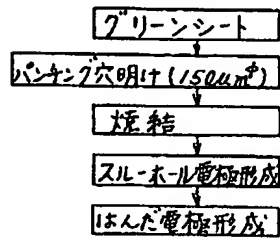 グリーンシート
パンチング穴明け(150μmφ)
焼結
スルーホール電極形成
はんだ電極形成